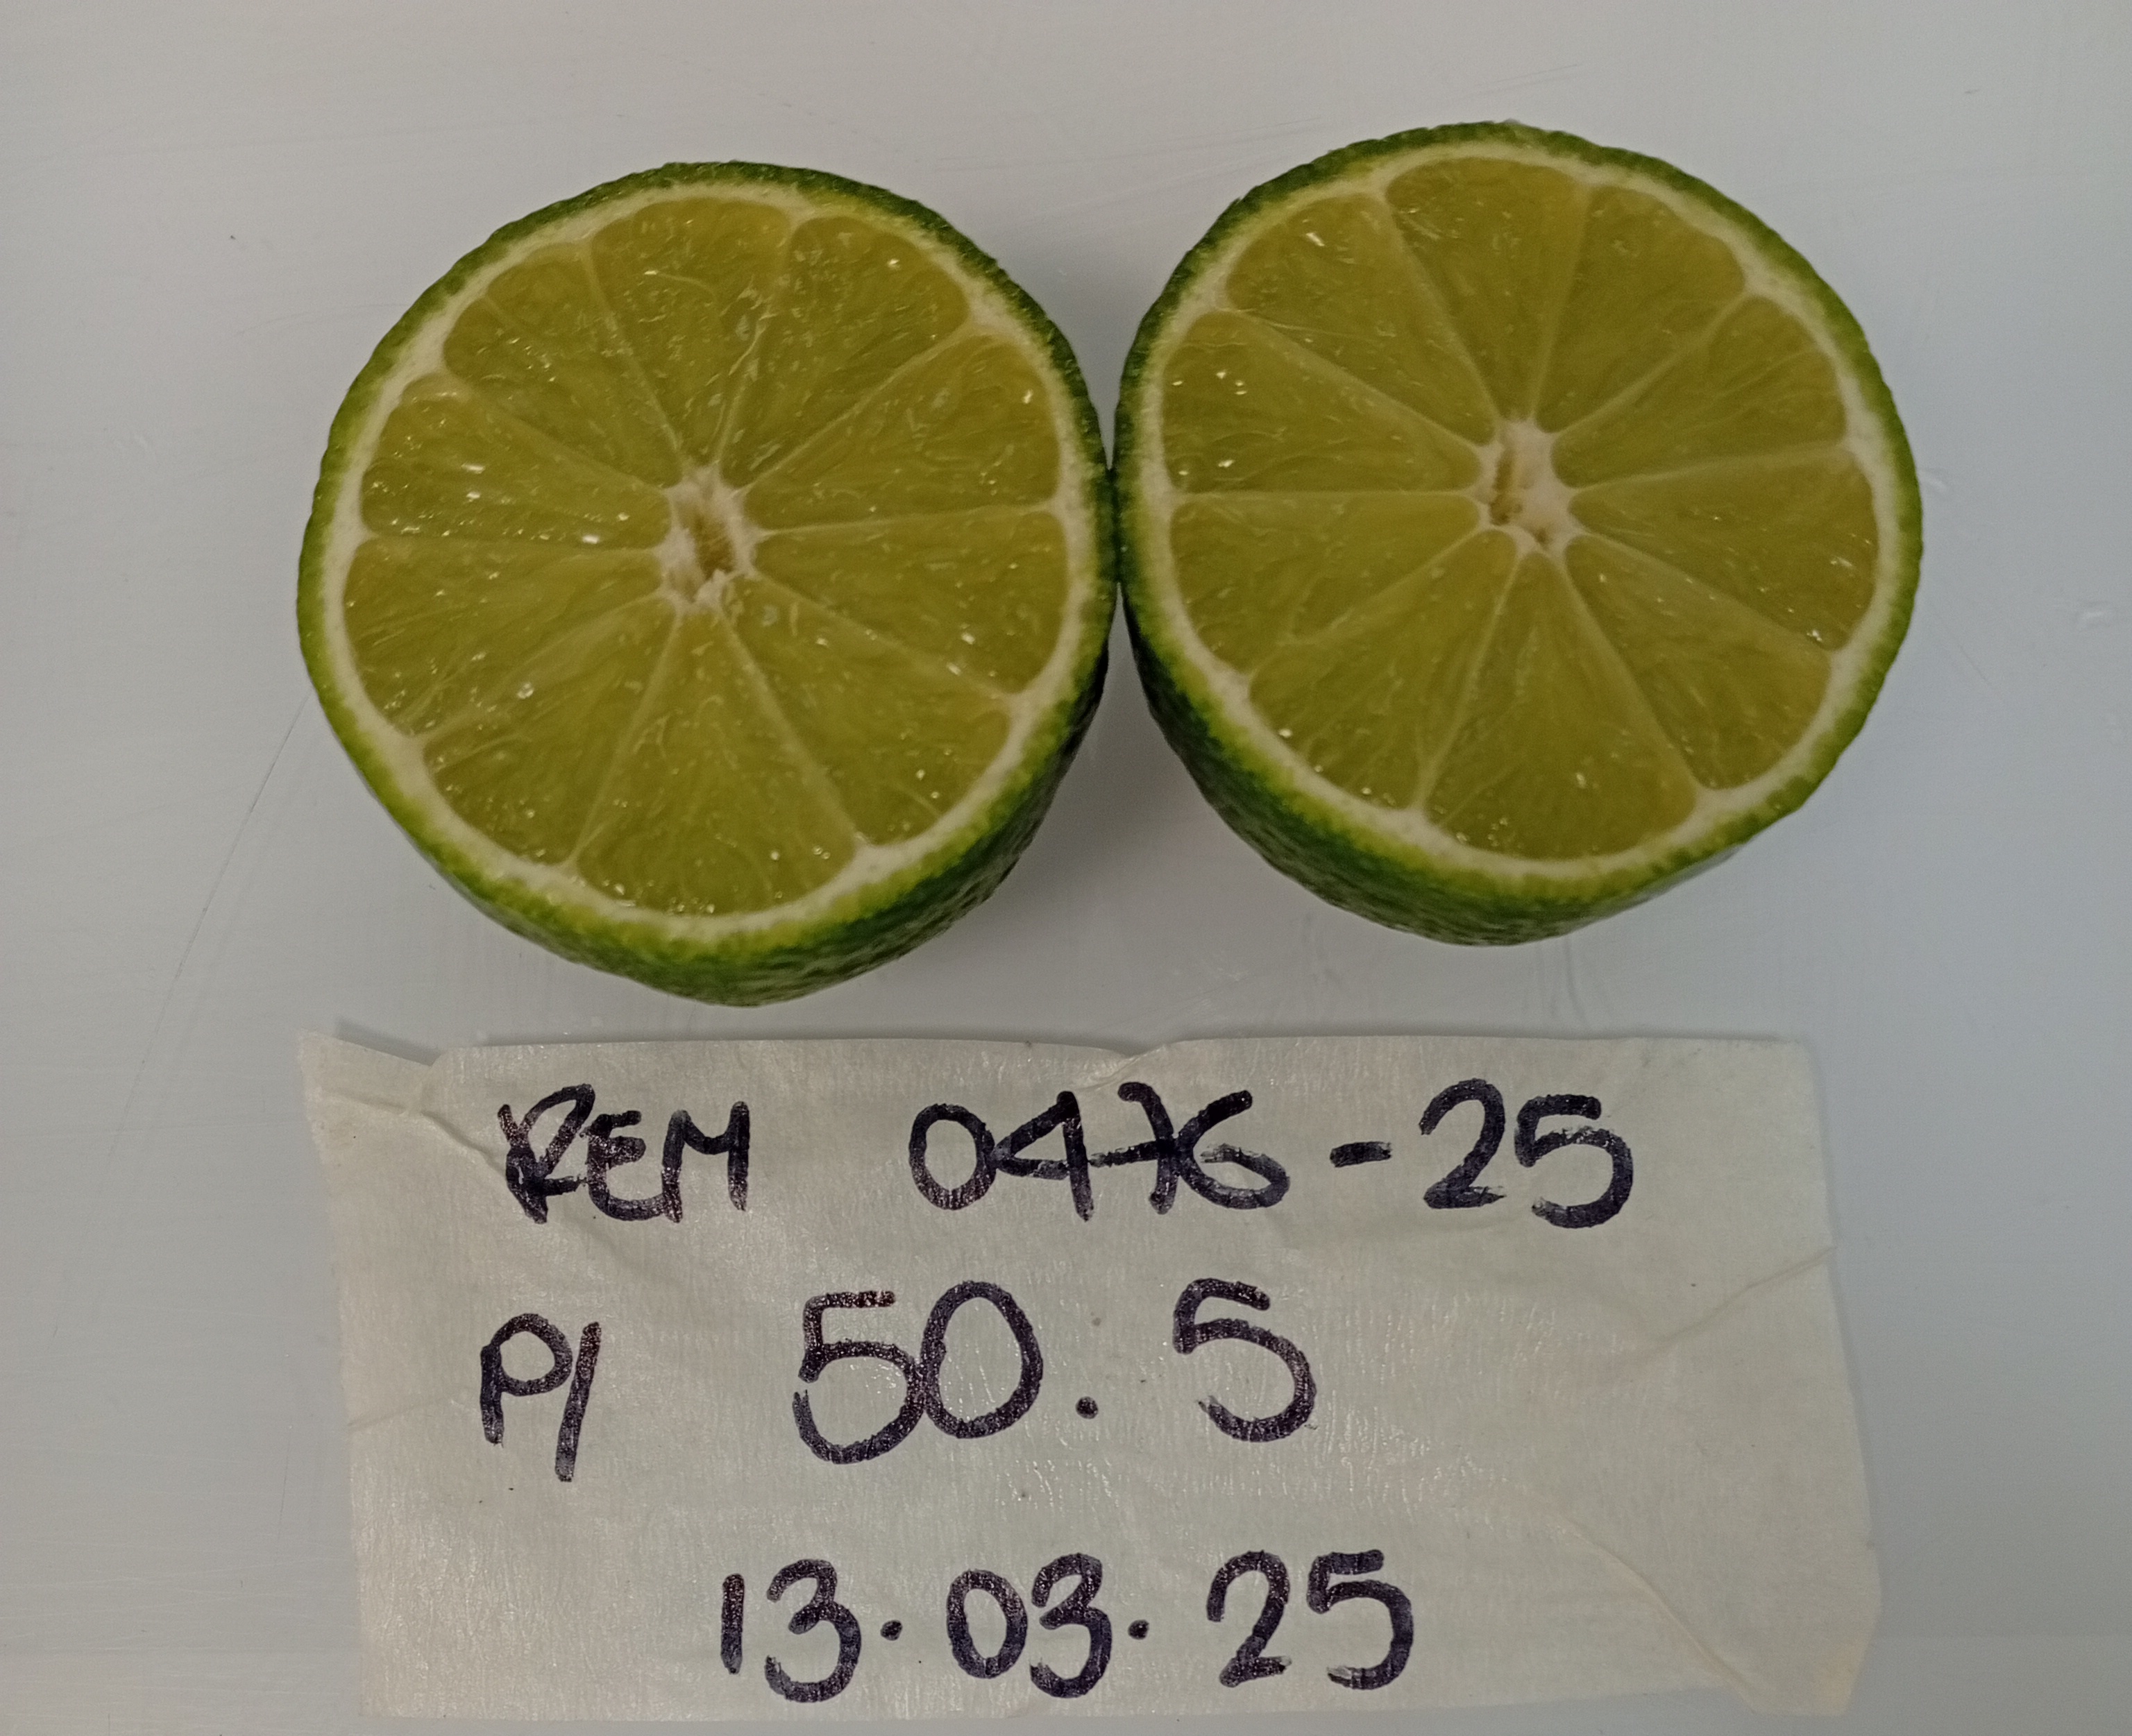 REM 0476-25
P/ 50.5
13.03.25